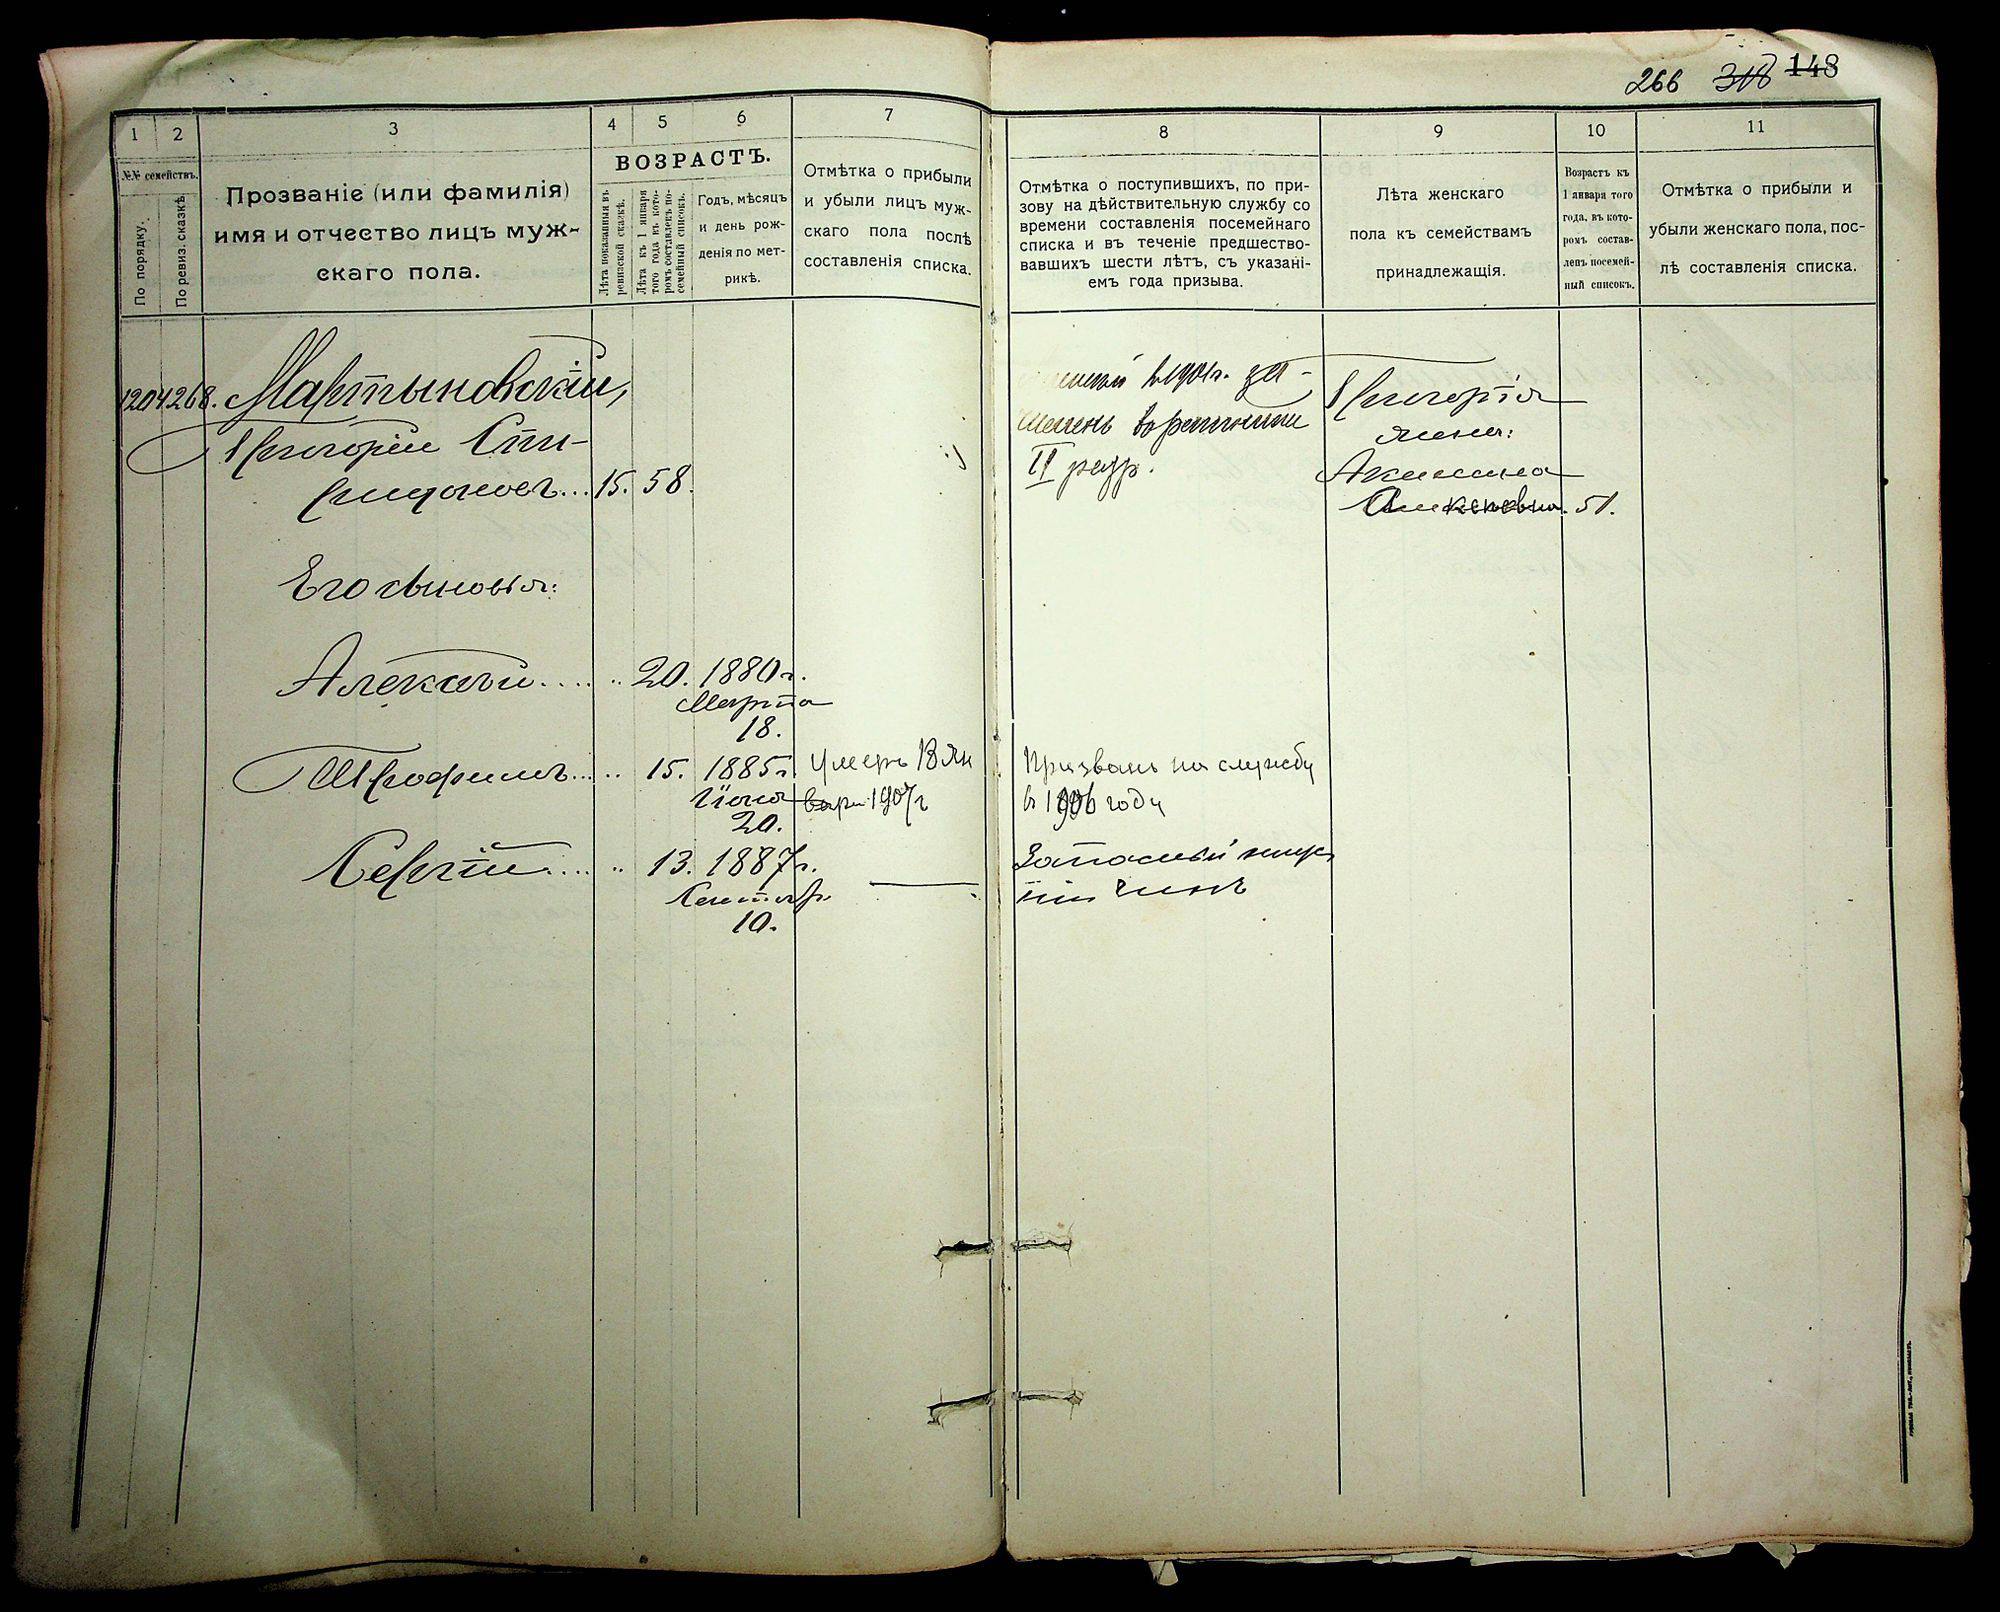 266 318 148
1
2
3
4
5
6
7
8
9
10
11
№№ семействъ.
По порядку.
По ревиз. сказкѣ.
Прозваніе (или фамилія)
имя и отчество лицъ муж-
скаго пола.
ВОЗРАСТЪ.
Лѣта показанныя въ
ревизской сказкѣ.
Лѣта къ 1 января
того года въ кото-
ромъ составленъ по-
семейный списокъ.
Годъ, мѣсяцъ
и день рож-
денія по мет-
рикѣ.
Отмѣтка о прибыли
и убыли лицъ муж-
скаго пола послѣ
составленія списка.
Отмѣтка о поступившихъ, по при-
зову на дѣйствительную службу со
времени составленія посемейнаго
списка и въ теченіе предшество-
вавшихъ шести лѣтъ, съ указані-
емъ года призыва.
Лѣта женскаго
пола къ семействамъ
принадлежащія.
Возрастъ къ
1 января того
года, въ кото-
ромъ состав-
ленъ посемей-
ный списокъ.
Отмѣтка о прибыли и
убыли женскаго пола, пос-
лѣ составленія списка.
1204 268. Мартыновскій,
Григорій Спи-
ридоновъ... 15. 58.
Его сыновья:
Алексѣй.... " 20. 1880 г.
Марта
18.
Трофимъ.... " 15. 1885 г.
Іюля
20.
Умеръ 13 Ян
варя 1907 г
Сергій.... " 13. 1887 г.
Сентябр.
10.
в 1901 г. за-
численъ в ратники
II разр.
Призванъ на службу
в 1906 году
Запасный ниж
ній чинъ
Григорія
жена:
Акилина
51.